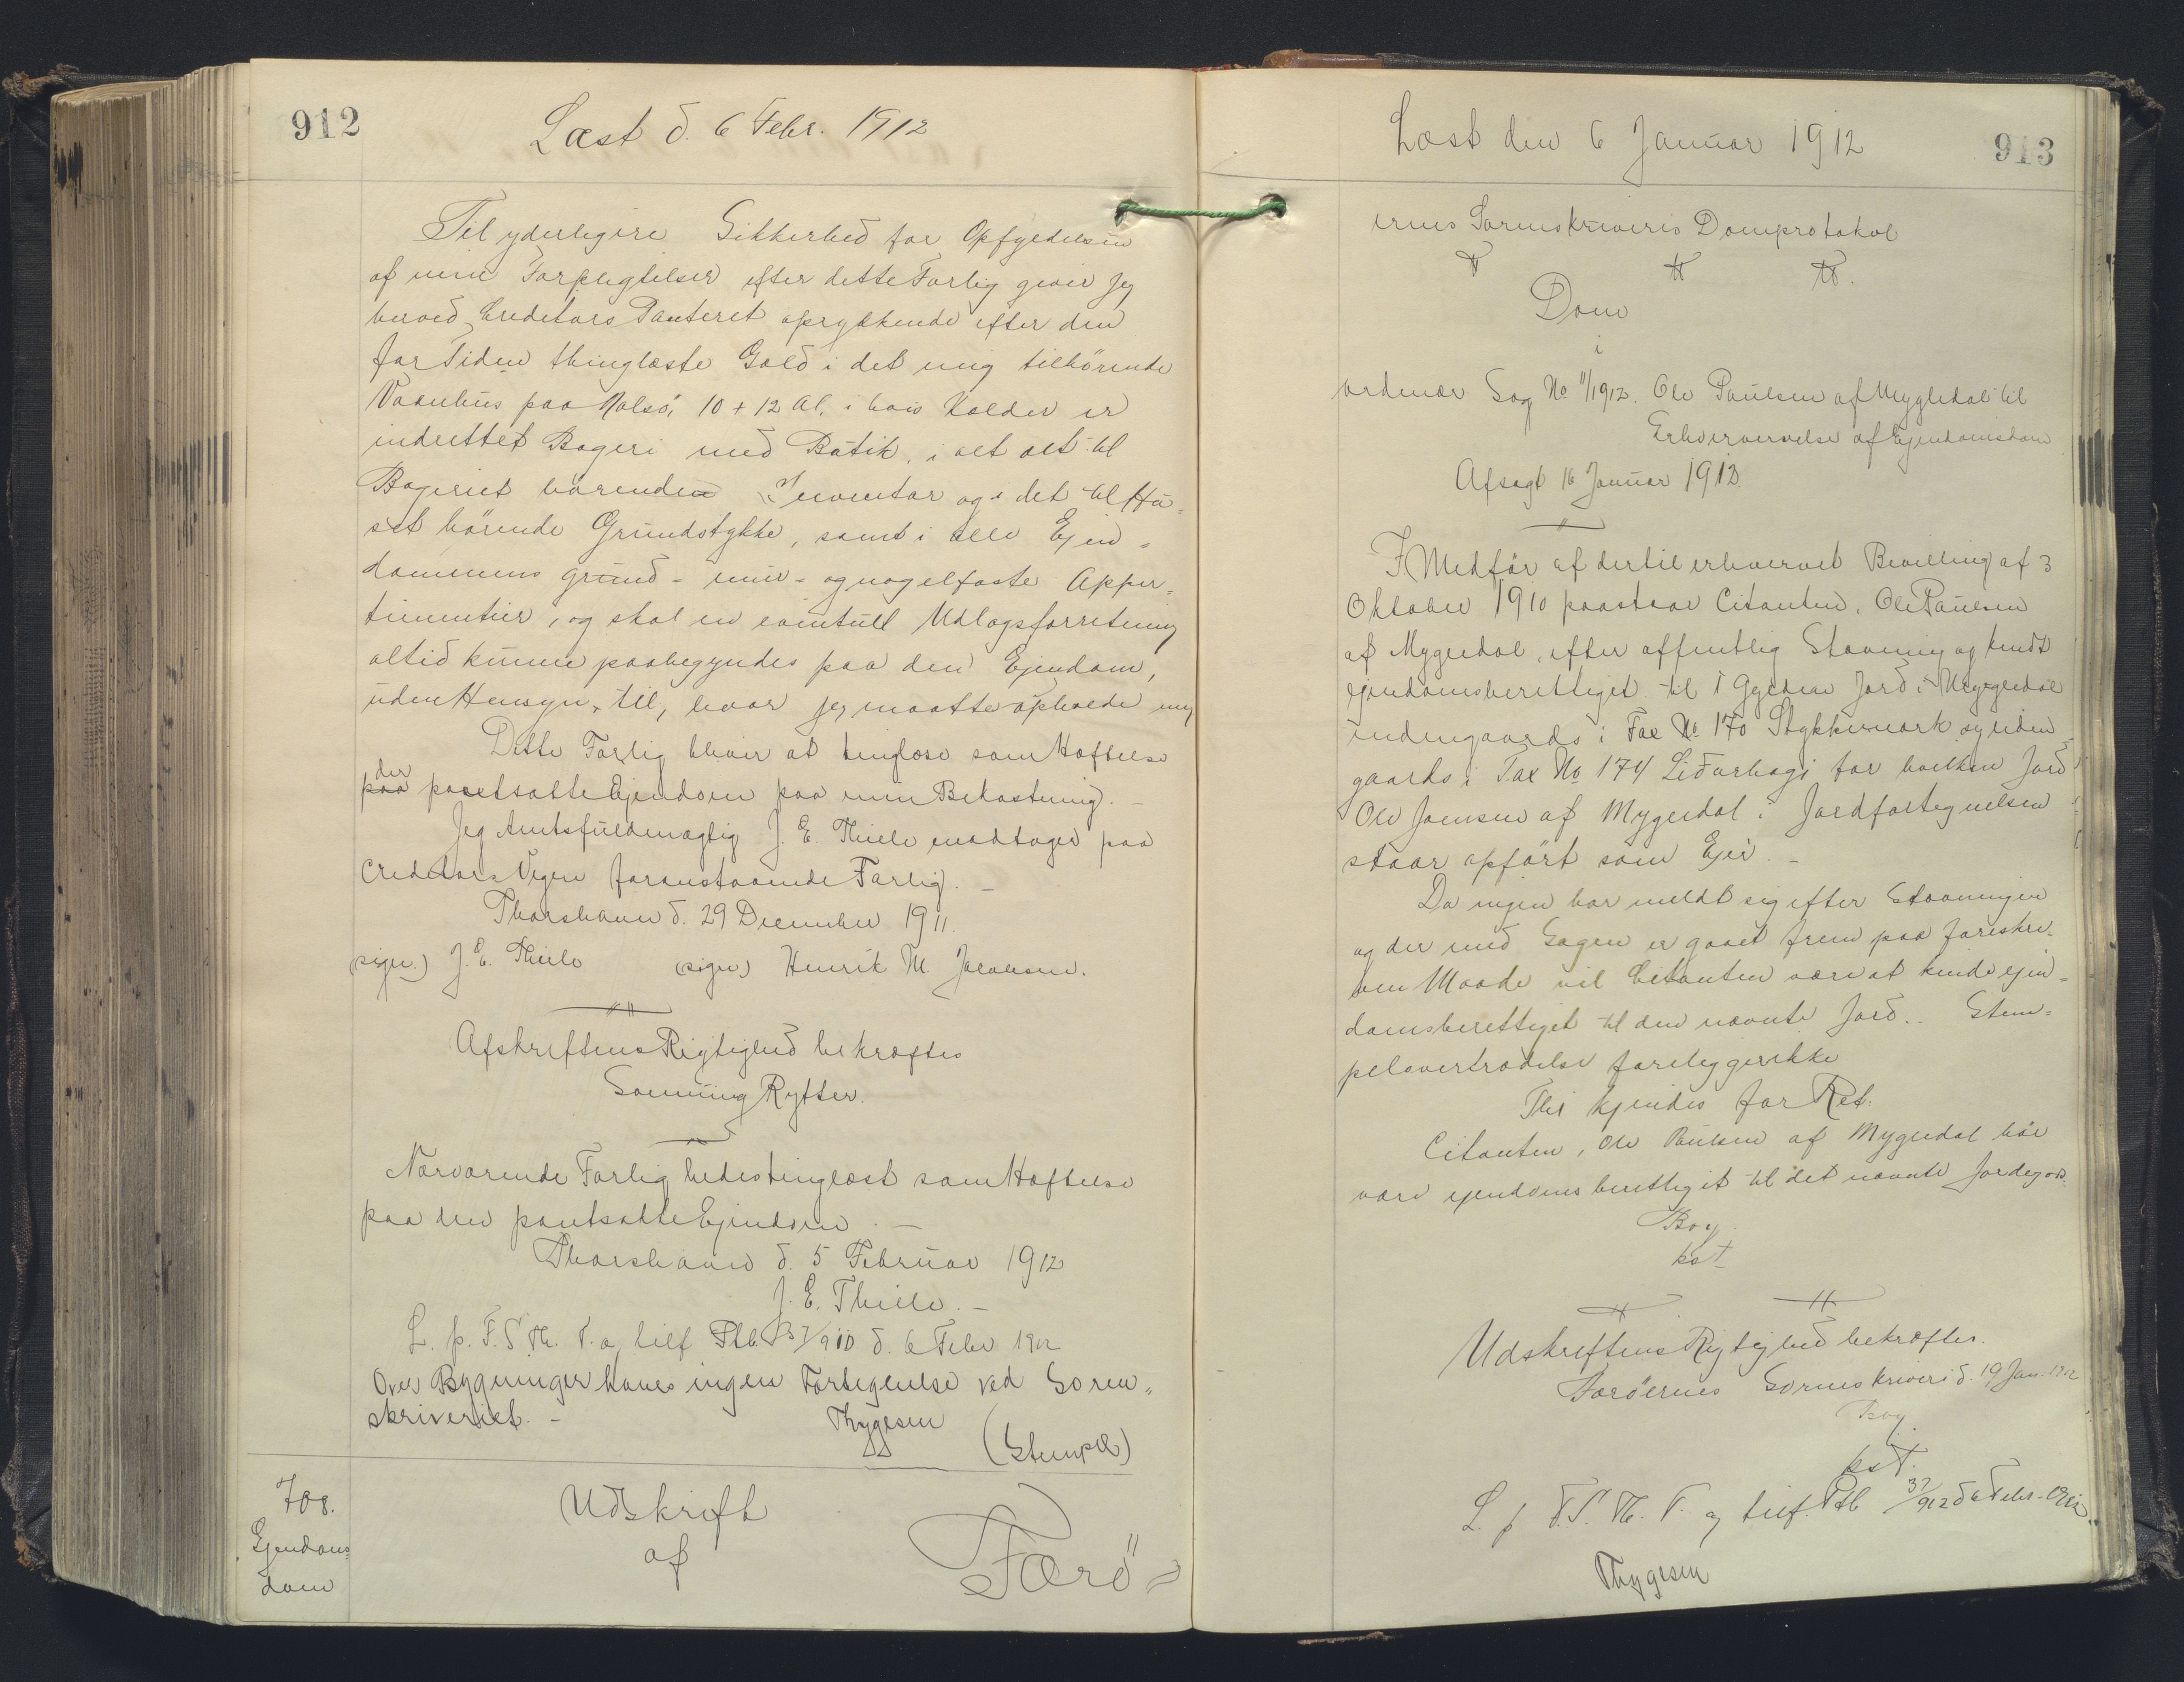 912
Læst d. 6 Febr. 1912
Til yderligere Sikkerhed for Opfyldelsen
af min Forpligtelser efter dette Forlig giver jeg
herved Creditors Panteret oprykkende efter den
for Tiden thinglæste Gæld i det mig tilhörende
Vaanhus paa Nolsö, 10 + 12 Al. i hvis Kælder er
indrettet Bageri med Butik, i alt alt til
Bageriet hörenden Inventar og i det til Hu=
set hörende Grundstykke, samt i alle Ejen=
dommens grund- mur- og nagelfaste Apper=
tinentier, og skal en eventuel Udlægsforretning
altid kunne paabegyndes paa den Ejendom,
uden Hensyn til, hvor jeg maatte opholde mig
Dette Forlig bliver at tinglæse som Hæftelse
der
paa pantsatte Ejendom paa min Bekostning. -
Jeg Amtsfuldmægtig J. E. Thiele modtager paa
Creditors Vegne foranstaaende Forlig. -
Thorshavn d. 29 December 1911.
(sign.) J. E. Thiele (sign) Henrik M. Jacobsen.
Afskriftens Rigtighed bekræftes
Rytter.
Nærværende Forlig bedes tinglæst som Hæftelse
paa den pantsatte Ejendom. -
Thorshavn d. 5 Februar 1912
J. E. Thiele. -
L. p. F. S. Th. T. og tilf Ptb. 137/910 d. 6 Febr 1912
Over Bygninger haves ingen Fortegnelse ved Soren=
skriveriet. - Thygesen
(Stempel)
708.
Ejendoms=
dom
Udskrift
af
Færö=
Læst den 6 Januar 1912
913
ernes Sorenskriveris Domprotokol
Dom
i
ordinær Sag No 11/1912. Ole Paulsen af Mygledal til
Erhververvelse af Ejendomsdom
Afsagt 16 Januar 1912
I Medför af dertil erhvervet Bevilling af 3
Oktober 1910 paastaar Citanten, Ole Paulsen
af Mygledal, efter offentlig Stævning og kendt
ejendomsberettiget til 1 Gylden Jord i Mygledal
indengaards i Tax No 170 Stykkimork og uden
gaards i Tax No 174 Lidarhagi for hvilken Jord
Ole Joensen af Mygledal i Jordfortegnelsen
staar opfört som Ejer. -
Da ingen har meldt sig efter Stævningen
og der med Sagen er gaaet frem paa foreskre=
ven Maade vil Citanten være at kende ejen=
domsberettiget til den nævnte Jord. - Stem=
pelovertrædelse foreligger ikke
Thi kjendes for Ret:
Citanten, Ole Paulsen af Mygledal bör
være ejendoms berettiget til det nævnte Jordegods.
Bay
kst
Udskriftens Rigtighed bekræftes.
Færöernes Sorenskriveri d. 19 Jan. 1912
Bay
kst.
L. p F. S. Th. T. og tilf. Ptb 37/912 d 6 Febr. 1912.
Thygesen